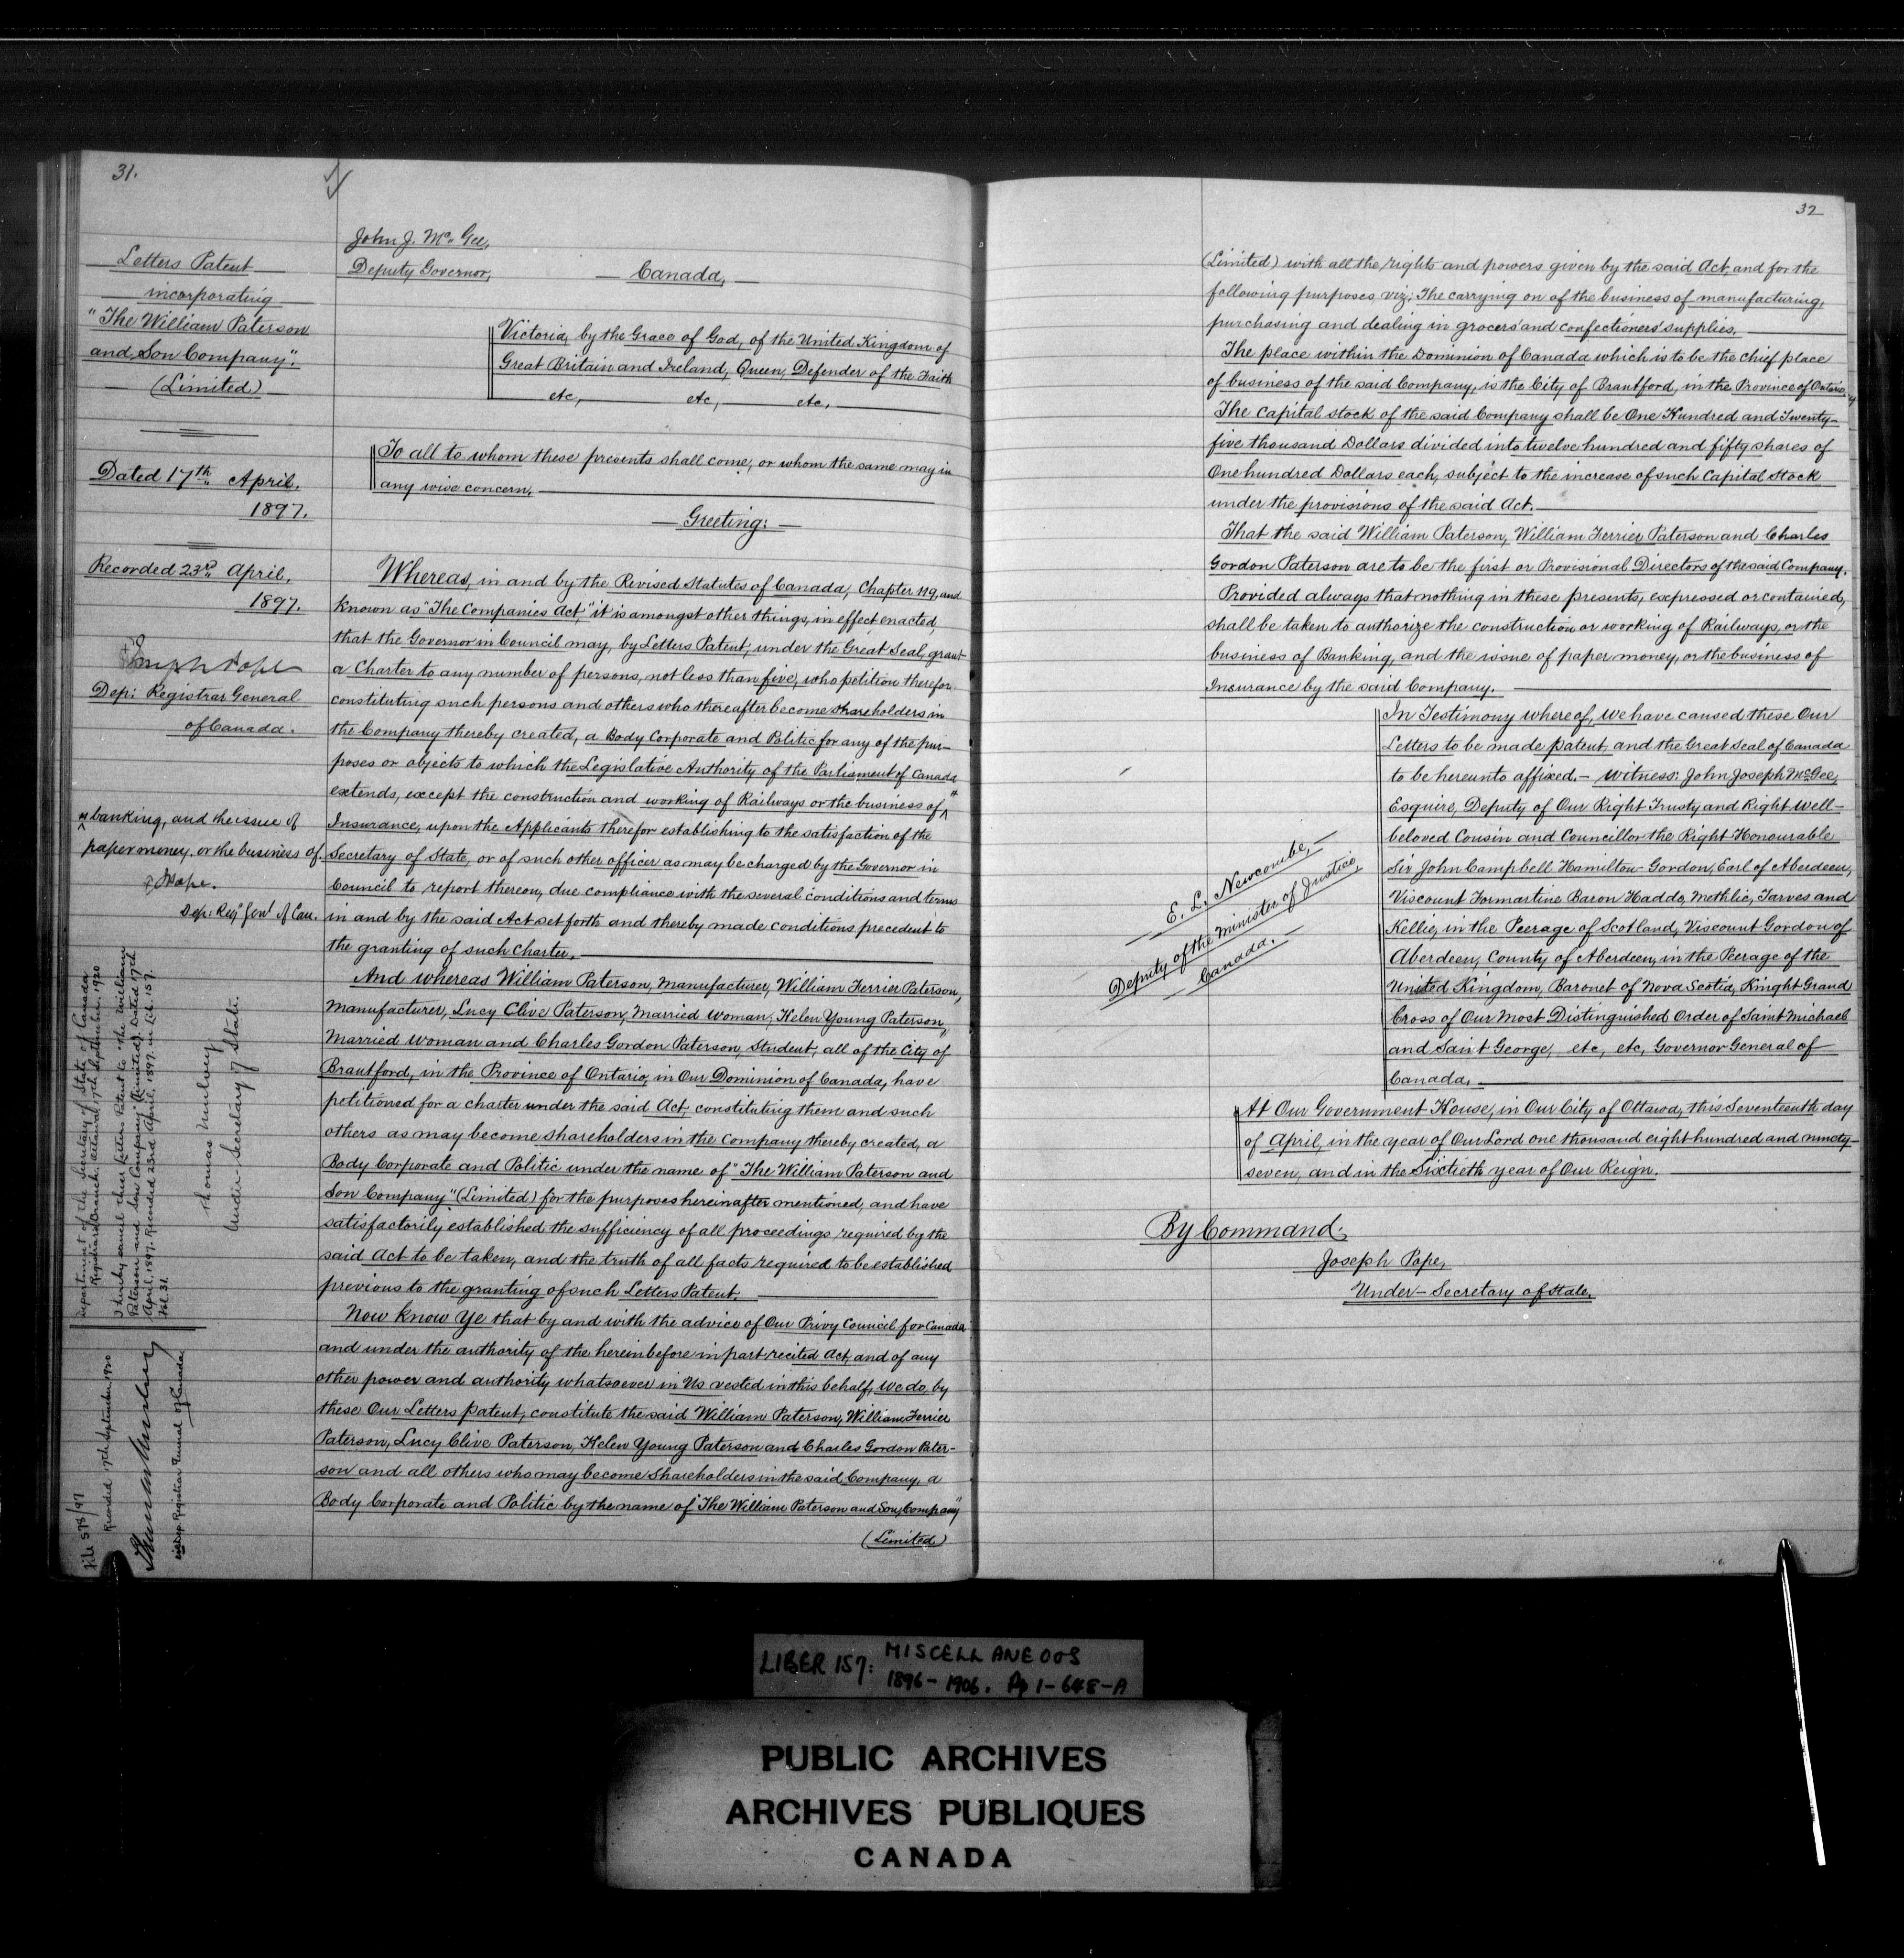 31.
Letters Patent
incorporating
"The William Paterson
and Son Company"
(Limited)
Dated 17th April,
1897.
Recorded 23rd April,
1897.
Joseph Pope
Dep: Registrar General
of Canada.
banking, and the issue of
paper money, or the business of
J. Pope.
Dep: Reg. Gen'l of Can.
Department of the Secretary of State of Canada
Registrar's Branch. Ottawa, 17th September, 1920
I hereby cancel these Letters Patent to "the William
Paterson and Son Company" (Limited). Dated 17th
April, 1897. Recorded 23rd April, 1897. in Lib. 157.
Fol. 31.
Thomas Mulvey
Under-Secretary of State.
File 578/97
Recorded 17th September, 1920
Thomas Mulvey
Dep. Registrar General of Canada
John J. McGee,
Deputy Governor,
Canada,
Victoria, by the Grace of God, of the United Kingdom of
Great Britain and Ireland, Queen, Defender of the Faith
etc, etc, etc,
To all to whom these presents shall come, or whom the same may in
any wise concern,
Greeting:
Whereas, in and by the Revised Statutes of Canada, Chapter 119, and
known as "The Companies Act," it is amongst other things, in effect enacted,
that the Governor in Council may, by Letters Patent, under the Great Seal, grant
a Charter to any number of persons, not less than five, who petition therefor
constituting such persons and others who thereafter become shareholders in
the Company thereby created, a Body Corporate and Politic for any of the pur-
poses or objects to which the Legislative Authority of the Parliament of Canada
extends, except the construction and working of Railways or the business of
Insurance, upon the Applicants therefor establishing to the satisfaction of the
Secretary of State, or of such other officer as may be charged by the Governor in
Council to report thereon, due compliance with the several conditions and terms
in and by the said Act set forth and thereby made conditions precedent to
the granting of such Charter.
And whereas William Paterson, Manufacturer, William Ferrier Paterson,
Manufacturer, Lucy Clive Paterson, Married woman, Helen Young Paterson,
Married woman and Charles Gordon Paterson, Student, all of the City of
Brantford, in the Province of Ontario, in Our Dominion of Canada, have
petitioned for a charter under the said Act, constituting them and such
others as may become shareholders in the Company thereby created, a
Body Corporate and Politic under the name of "The William Paterson and
Son Company" (Limited) for the purposes hereinafter mentioned, and have
satisfactorily established the sufficiency of all proceedings required by the
said Act to be taken, and the truth of all facts required to be established
previous to the granting of such Letters Patent.
Now Know Ye that by and with the advice of Our Privy Council for Canada
and under the authority of the hereinbefore in part recited Act, and of any
other power and authority whatsoever in Us vested in this behalf, We do by
these Our Letters Patent, constitute the said William Paterson, William Ferrier
Paterson, Lucy Clive Paterson, Helen Young Paterson and Charles Gordon Pater-
son and all others who may become Shareholders in the said Company, a
Body Corporate and Politic by the name of "The William Paterson and Son Company"
(Limited)
32
(Limited) with all the rights and powers given by the said Act, and for the
following purposes viz; The carrying on of the business of manufacturing,
purchasing and dealing in grocers' and confectioners' supplies.
The place within the Dominion of Canada which is to be the chief place
of business of the said Company, is the City of Brantford, in the Province of Ontario.
The Capital Stock of the said Company shall be One Hundred and Twenty-
five thousand Dollars divided into twelve hundred and fifty shares of
One hundred Dollars each, subject to the increase of such Capital Stock
under the provisions of the said Act.
That the said William Paterson, William Ferrier Paterson and Charles
Gordon Paterson are to be the first or Provisional Directors of the said Company.
Provided always that nothing in these presents, expressed or contained,
shall be taken to authorize the construction or working of Railways, or the
business of Banking, and the issue of paper money, or the business of
Insurance by the said Company.
In Testimony whereof, We have caused these Our
Letters to be made Patent, and the Great Seal of Canada
to be hereunto affixed.- Witness: John Joseph McGee,
Esquire, Deputy of Our Right Trusty and Right Well-
beloved Cousin and Councillor the Right Honourable
Sir John Campbell Hamilton-Gordon, Earl of Aberdeen,
Viscount Formartine Baron Haddo, Methlic, Tarves and
Kellie, in the Peerage of Scotland, Viscount Gordon of
Aberdeen, County of Aberdeen, in the Peerage of the
United Kingdom, Baronet of Nova Scotia, Knight Grand
Cross of Our Most Distinguished Order of Saint Michael
and Saint George, etc, etc, Governor General of
Canada.
E. L. Newcombe,
Deputy of the Minister of Justice,
Canada.
At Our Government House, in Our City of Ottawa, this Seventeenth day
of April, in the year of Our Lord one thousand eight hundred and ninety-
seven, and in the Sixtieth year of Our Reign.
By Command,
Joseph Pope,
Under-Secretary of State.
LIBER 157: MISCELLANEOUS
1896-1906. Pp 1-648-A
PUBLIC ARCHIVES
ARCHIVES PUBLIQUES
CANADA